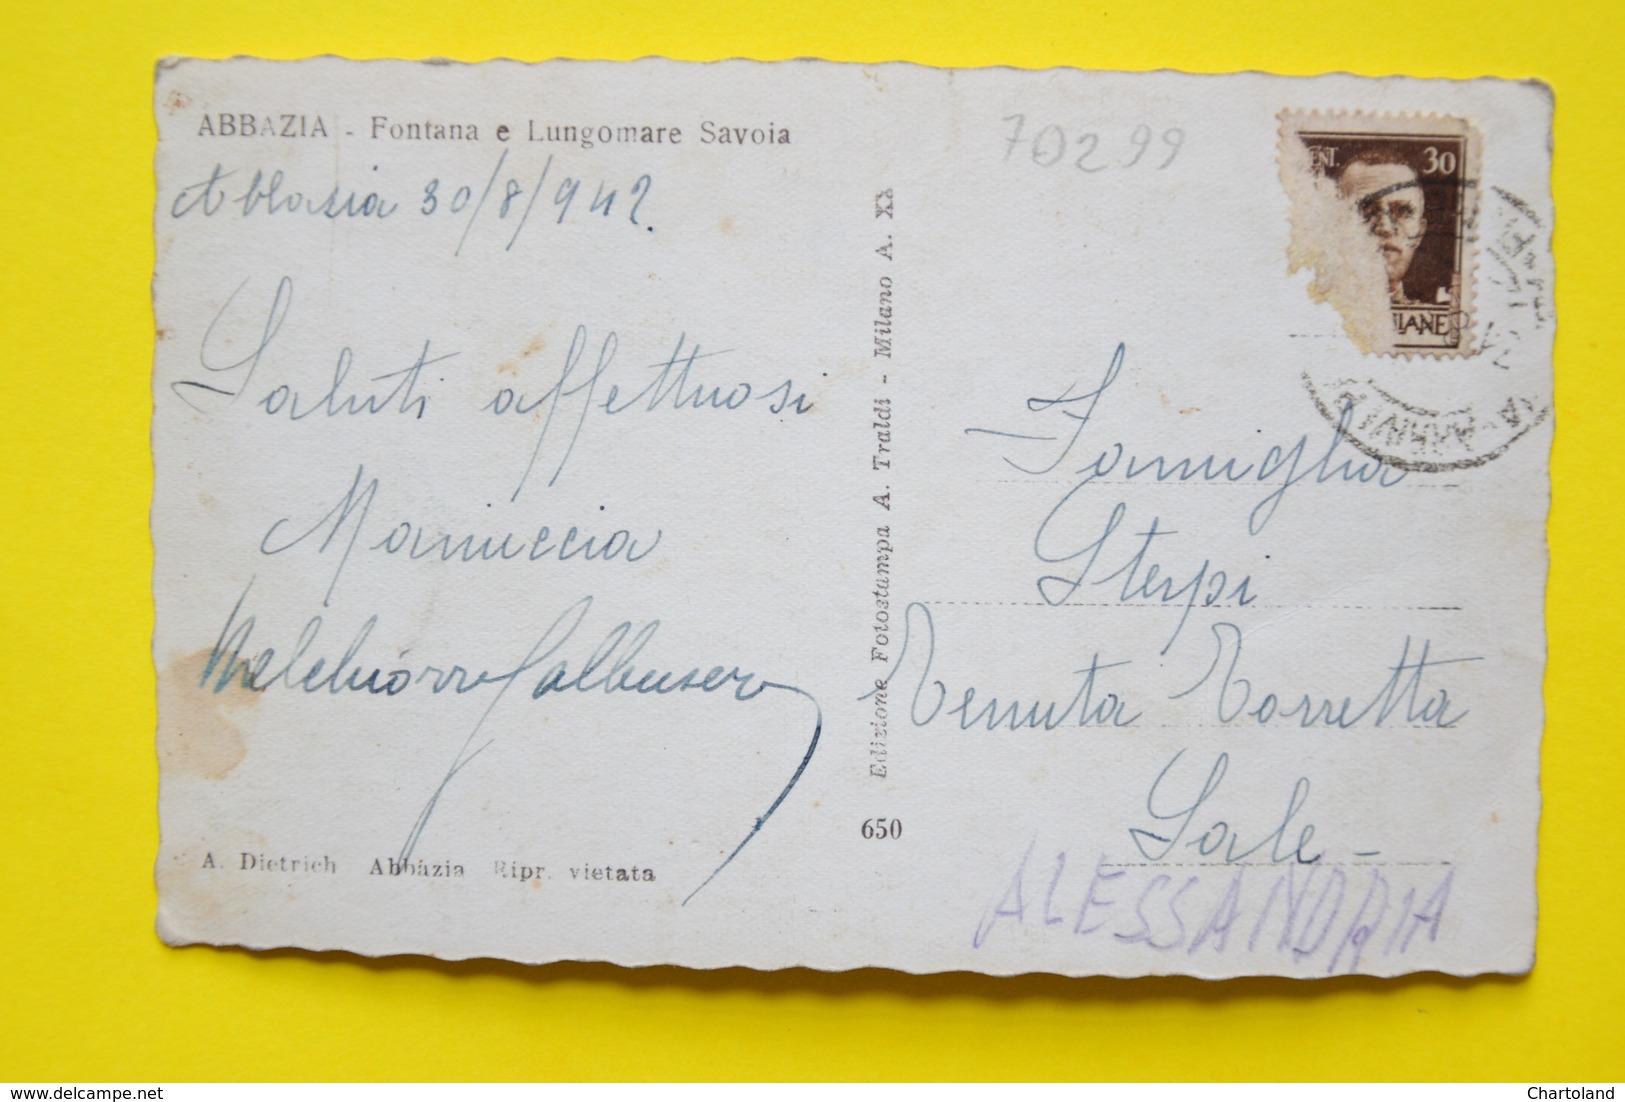 ABBAZIA - Fontana e Lungomare Savoia
Abbazia 30/8/942.
Saluti affettuosi
Mariuccia
Melchiorre Galbusera
A. Dietrich Abbazia Ripr. vietata
Edizione Fotostampa A. Traldi - Milano A. XX
650
70299
ENT. 30
LIANE
Famiglia
Sterpi
Tenuta Torretta
Sale -
ALESSANDRIA
Chartoland
www.delcampe.net